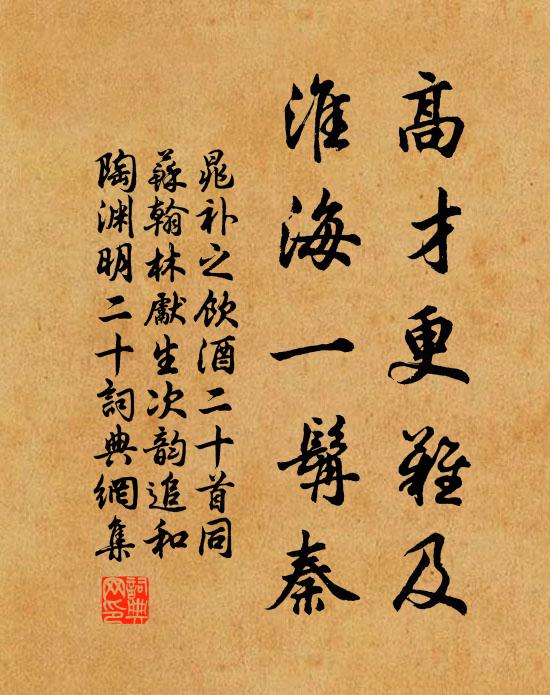 高才更難及
淮海一髯秦
晁补之飲酒二十首同
蘇翰林獻生次韵追和
陶渊明二十詞典網集
詞典
网印